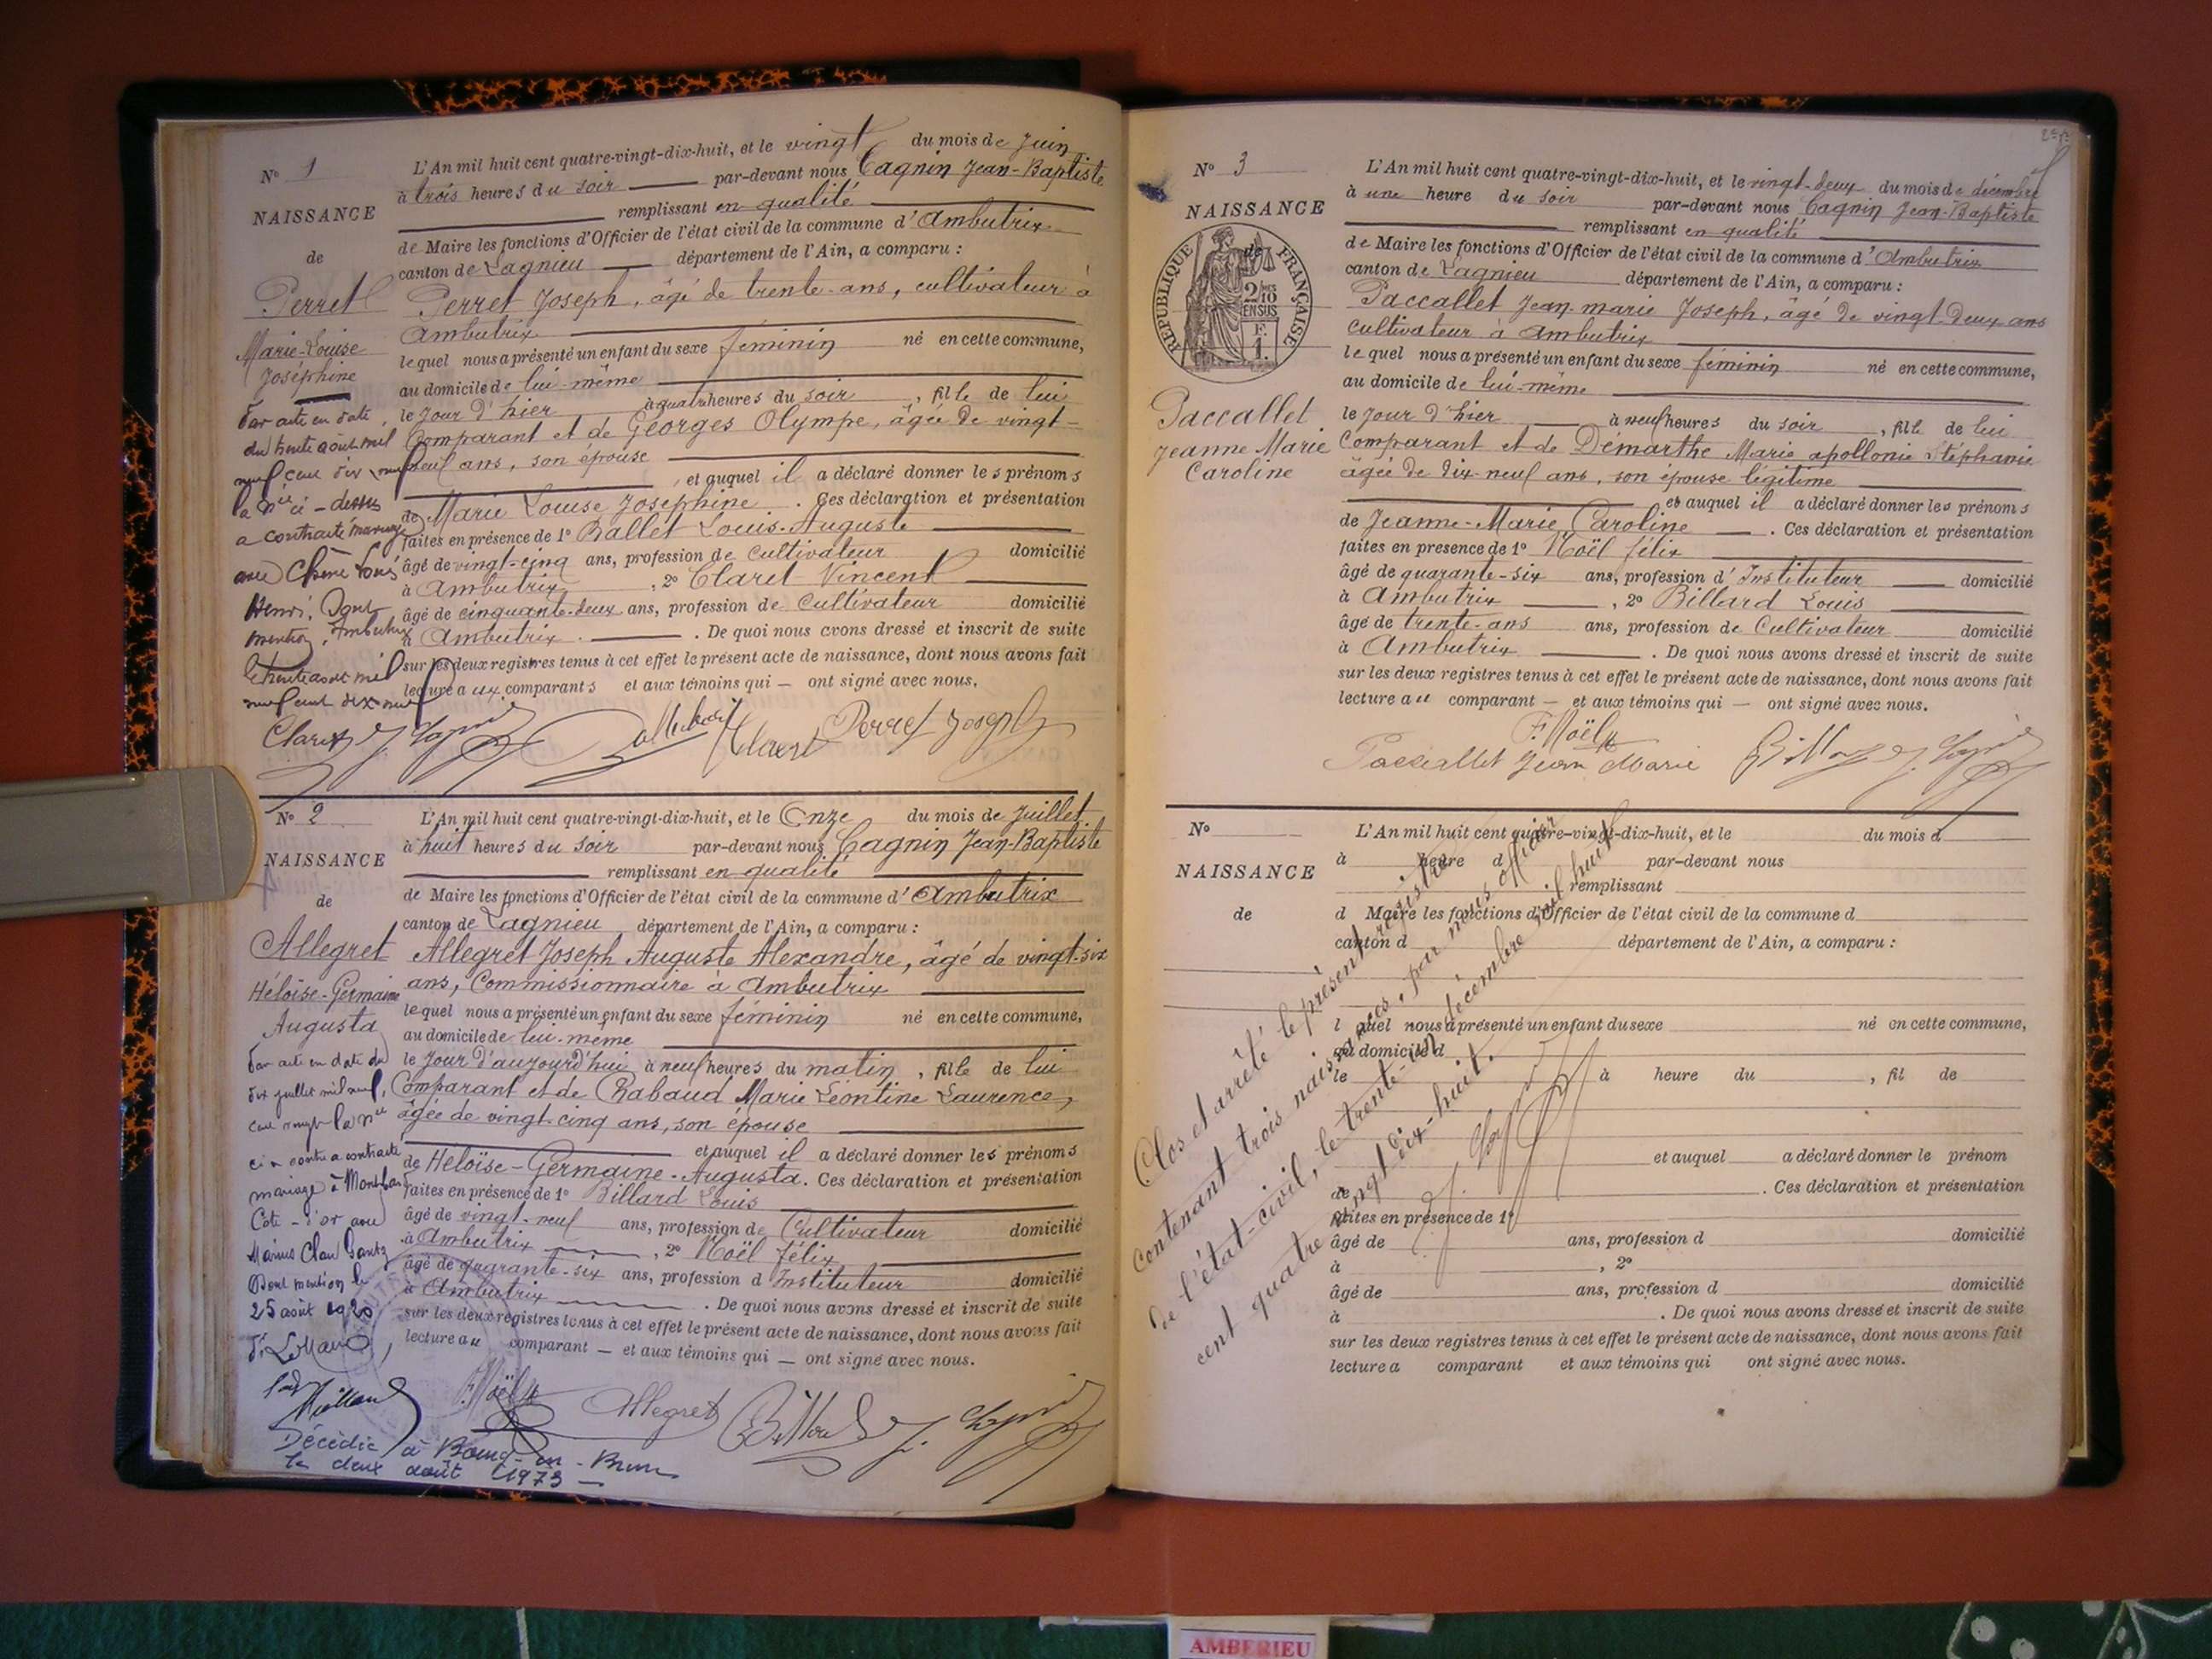 No 1
NAISSANCE
de
Perret
Marie-Louise
Joséphine
Par acte en date
du trente août mil
neuf cent dix neuf
la née ci-dessus
a contracté mariage
avec Chêne Louis
Henri. Dont
mention. Ambutrix
le trente août mil
neuf cent dix neuf
L'An mil huit cent quatre-vingt-dix-huit, et le vingt du mois de Juin
à trois heures du soir par-devant nous Cagnin Jean-Baptiste
remplissant en qualité
de Maire les fonctions d'Officier de l'état civil de la commune d'Ambutrix
canton de Lagnieu département de l'Ain, a comparu :
Perret Joseph, âgé de trente-ans, cultivateur à
Ambutrix
lequel nous a présenté un enfant du sexe féminin né en cette commune,
au domicile de lui-même
le jour d'hier à quatre heures du soir, fille de lui
Comparant et de Georges Olympe, âgée de vingt-
neuf ans, son épouse
et auquel il a déclaré donner les prénoms
de Marie Louise Joséphine. Ces déclaration et présentation
faites en présence de 1o Ballet Louis-Auguste
âgé de vingt-cinq ans, profession de Cultivateur domicilié
à Ambutrix, 2o Claret Vincent
âgé de cinquante-deux ans, profession de Cultivateur domicilié
à Ambutrix. De quoi nous avons dressé et inscrit de suite
sur les deux registres tenus à cet effet le présent acte de naissance, dont nous avons fait
lecture aux comparants et aux témoins qui — ont signé avec nous.
Claret Perret Joseph
No 2
NAISSANCE
de
Allegret
Héloïse-Germaine
Augusta
Par acte en date du
dix juillet mil neuf
cent vingt la née
ci-contre a contracté
mariage à Montbard
Côte-d'or avec
Marius
Dont mention le
25 août 1920
L'An mil huit cent quatre-vingt-dix-huit, et le Onze du mois de Juillet
à huit heures du soir par-devant nous Cagnin Jean-Baptiste
remplissant en qualité
de Maire les fonctions d'Officier de l'état civil de la commune d'Ambutrix
canton de Lagnieu département de l'Ain, a comparu :
Allegret Joseph Auguste Alexandre, âgé de vingt-six
ans, Commissionnaire à Ambutrix
lequel nous a présenté un enfant du sexe féminin né en cette commune,
au domicile de lui-même
le jour d'aujourd'hui à neuf heures du matin, fille de lui
Comparant et de Rabaud Marie Léontine Laurence,
âgée de vingt-cinq ans, son épouse
et auquel il a déclaré donner les prénoms
de Héloïse-Germaine-Augusta. Ces déclaration et présentation
faites en présence de 1o Billard Louis
âgé de vingt-neuf ans, profession de Cultivateur domicilié
à Ambutrix, 2o Noël félix
âgé de quarante-six ans, profession d Instituteur domicilié
à Ambutrix. De quoi nous avons dressé et inscrit de suite
sur les deux registres tenus à cet effet le présent acte de naissance, dont nous avons fait
lecture au comparant — et aux témoins qui — ont signé avec nous.
F. Noël Allegret Billard
Décédée à Bourg-en-Bresse
le deux août 1973
No 3
NAISSANCE
de
RÉPUBLIQUE FRANÇAISE
2/10
EN SUS
F.
1.
Paccallet
Jeanne Marie
Caroline
L'An mil huit cent quatre-vingt-dix-huit, et le vingt-deux du mois de décembre
à une heure du soir par-devant nous Cagnin Jean-Baptiste
remplissant en qualité
de Maire les fonctions d'Officier de l'état civil de la commune d'Ambutrix
canton de Lagnieu département de l'Ain, a comparu :
Paccallet Jean-marie Joseph, âgé de vingt-deux ans
cultivateur à Ambutrix
lequel nous a présenté un enfant du sexe féminin né en cette commune,
au domicile de lui-même
le jour d'hier à neuf heures du soir, fille de lui
Comparant et de Démarthe Marie apollonie Stéphanie
âgée de dix-neuf ans, son épouse légitime
et auquel il a déclaré donner les prénoms
de Jeanne-Marie Caroline. Ces déclaration et présentation
faites en presence de 1o Noël félix
âgé de quarante-six ans, profession d'Instituteur domicilié
à Ambutrix, 2o Billard Louis
âgé de trente-ans ans, profession de Cultivateur domicilié
à Ambutrix. De quoi nous avons dressé et inscrit de suite
sur les deux registres tenus à cet effet le présent acte de naissance, dont nous avons fait
lecture au comparant — et aux témoins qui — ont signé avec nous.
F. Noël
Paccallet Jean Marie Billard
No
NAISSANCE
de
L'An mil huit cent quatre-vingt-dix-huit, et le du mois d
à heure d par-devant nous
remplissant
d Maire les fonctions d'Officier de l'état civil de la commune d
canton d département de l'Ain, a comparu :
l quel nous a présenté un enfant du sexe né en cette commune,
au domicile d
le à heure du , fil de
et auquel a déclaré donner le prénom
de . Ces déclaration et présentation
faites en présence de 1o
âgé de ans, profession d domicilié
à , 2o
âgé de ans, profession d domicilié
à . De quoi nous avons dressé et inscrit de suite
sur les deux registres tenus à cet effet le présent acte de naissance, dont nous avons fait
lecture a comparant et aux témoins qui ont signé avec nous.
Clos et arrêté le présent registre
contenant trois naissances, par nous officier
de l'état-civil, le trente-un décembre mil huit
cent quatre vingt dix-huit.
AMBERIEU